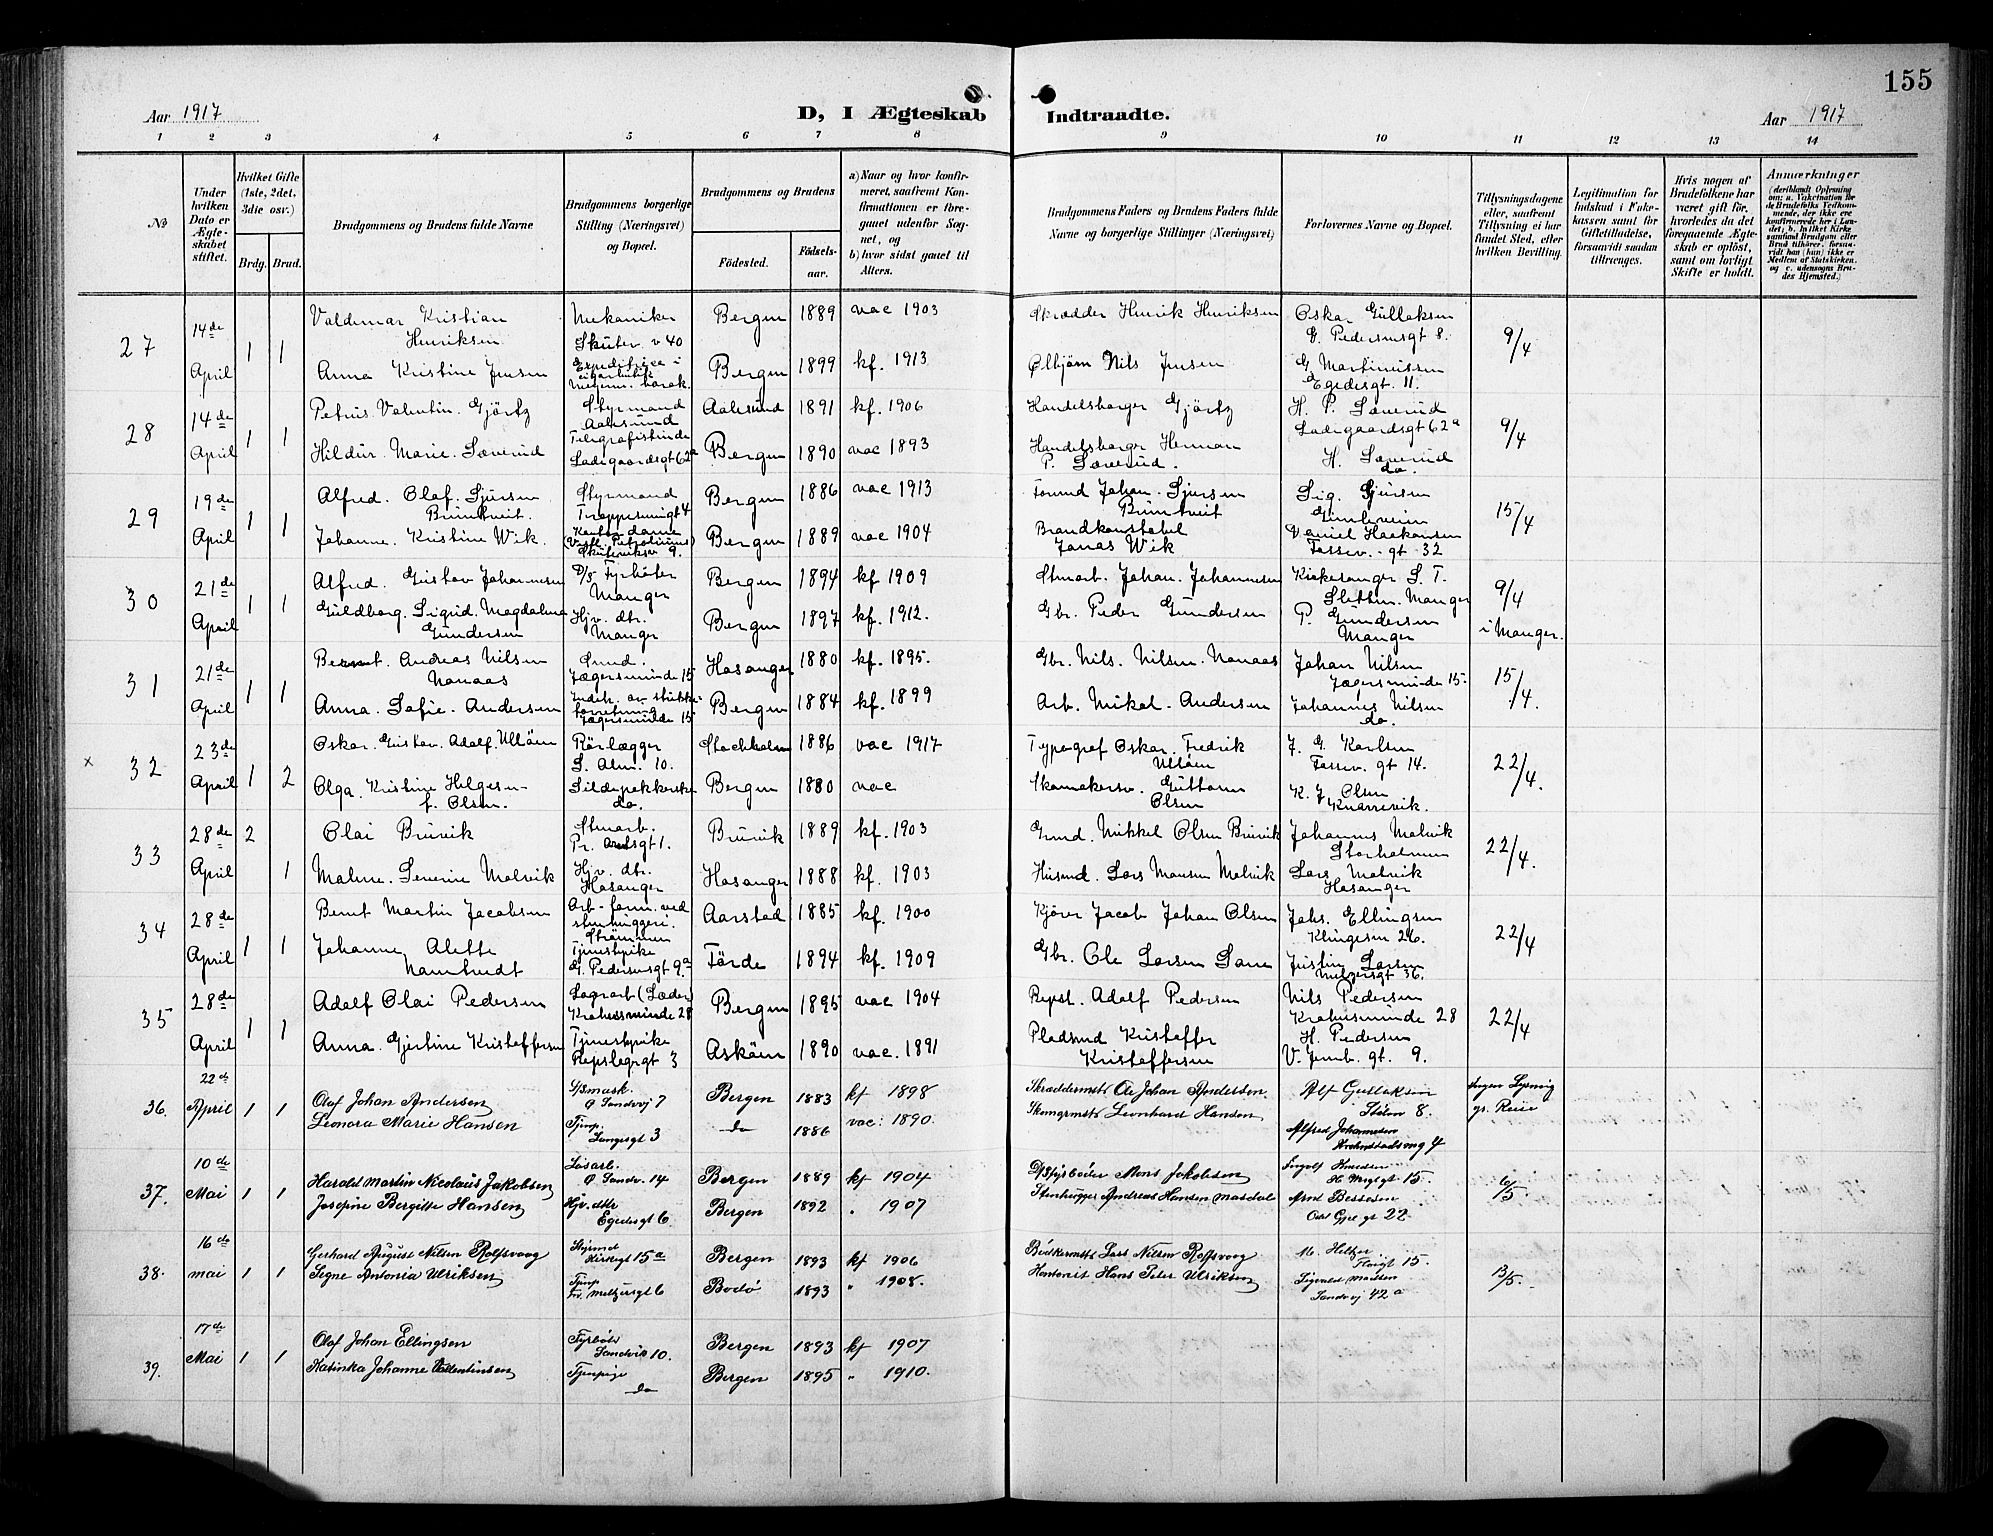 155
Aar 1917
D, I Ægteskab Indtraadte.
Aar 1917
1 2 3 4 5 6 7 8 9 10 11 12 13 14
No
Under hvilken Dato er Ægteskabet stiftet.
Hvilket Gifte (1ste, 2det, 3die osv.)
Brdg. Brud.
Brudgommens og Brudens fulde Navne
Brudgommens borgerlige Stilling (Næringsvei) og Bopæl.
Brudgommens og Brudens
Födested.
Födselsaar.
a) Naar og hvor konfirmeret, saafremt Konfirmationen er foregaaet udenfor Sognet, og
b) hvor sidst gaaet til Alters.
Brudgommens Faders og Brudens Faders fulde Navne og borgerlige Stillinger (Næringsvei)
Forlovernes Navne og Bopæl.
Tillysningsdagene eller, saafremt Tillysning ei har fundet Sted, efter hvilken Bevilling.
Legitimation for Indskud i Enkekassen samt for Giftetilladelse, forsaavidt saadan tiltrænges.
Hvis nogen af Brudefolkene har været gift för, hvorledes da det foregaaende Ægteskab er oplöst, samt om lovligt Skifte er holdt.
Anmærkninger
(deriblandt Oplysning om: a. Vakcination för de Brudefolks Vedkommende, der ikke ere konfirmerede her i Landet; b. hvilket Kirkesamfund Brudgom eller Brud tilhörer, forsaavidt han (hun) ikke er Medlem af Statskirken, og c. udensogns Brudes Hjemsted.)
27 14de April 1 1
Valdemar Kristian Henriksen Mekaniker Skutev. v 40 Bergen 1889 vac 1903 Skrædder Henrik Henriksen Oskar Gullaksen G. Pedersensgt 8. 9/4
Anna Kristine Jensen Bergen 1899 kf. 1913 Ølbjörn Nils Jensen G. Martinussen Egedesgt. 11.
28 14de April 1 1
Petrus Valentin Gjörtz Styrmand Aalesund Aalesund 1891 kf. 1906 Handelsborger Gjörtz H. P. Sæverud Ladegaardsgt 62a 9/4
Hildur Marie Sæverud Telegrafistinde Ladegaardsgt 62a Bergen 1890 vac 1893 Handelsborger Herman P. Sæverud. H. Sæverud do.
29 19de April 1 1
Alfred. Olaf. Sjursen Brimtveit. Styrmand Bergen 1886 vac 1913 Johan. Sjursen Brimtveit Sig. Sjursen 15/4
Johanne. Kristine Wik. Kontordame Skuteviksv 9. Bergen 1889 vac 1904 Brandkonstabel Jonas Wik Daniel Haakonsen Fossev. gt 32
30 21de April 1 1
Alfred. Gustav Johannesen D/S Fyrböter Manger Bergen 1894 kf 1909 Stuarb. Johan. Johannesen Kirkesanger S. T. Sletten. Manger 9/4
Guldborg. Sigrid. Magdalena Gundersen Hjv. dtr. Manger Bergen 1897 kf. 1912. Gbr. Peder Gundersen P. Gundersen Manger i Manger.
31 21de April 1 1
Bernt. Andreas Nilsen Nonaas Jægersminde 15 Hosanger 1880 kf. 1895. Gbr. Nils. Nilsen. Nonaas Johan Nilsen Jægersminde 15 15/4.
Anna. Sofie. Andersen Jægersminde 15 Bergen 1884 kf. 1899 Arb. Mikal. Andersen Johannes Nilsen do.
x 32 23de April 1 2
Oskar. Gustav. Adolf. Ullöen Rörlægger S. Alm. 10. Stockholm 1886 vac 1917 Typograf Oskar. Fredrik Ullöen J. G. Karlsen Fossev. gt 14. 22/4.
Olga. Kristine Helgesen f. Olsen. Sildepakkerske do. Bergen 1880 vac Skomakersv. Guttorm Olsen K. J. Olsen Knarrevik.
33 28de April 2 1
Olai Bruvik Stuarb. Bruvik 1889 kf. 1903 Mikkel Olsen Bruvik Johannes Molvik Storholmen 22/4.
Malene. Severine Molvik Hjv. dtr. Hosanger Hosanger 1888 kf. 1903 Husmd. Lars Monsen Molvik Lars Molvik Hosanger
34 28de April 1 1
Bernt Martin Jacobsen Arb-form. ved stenhuggeri. Strömmen Aarstad 1885 kf. 1900 Kjörer Jacob Johan Olsen Johs. Ellingsen 26. 22/4
Johanne Alette Namtvedt Tjenestpike G. Pedersensgt 9a Förde 1894 kf. 1909 Gbr. Ole Larsen Justin Larsen Meltzersgt 36.
35 28de April 1 1
Adolf Olai Pedersen Krohnsminde 28 Bergen 1895 vac 1904 Repsl. Adolf Pedersen Nils Pedersen Krohnsminde 28 22/4
Anna. Gjertine Kristoffersen Tjenestpike Repslagrgt 3 Asköen 1890 vac. 1891 Pladsmd Kristoffer Kristoffersen H. Pedersen V. Jernb. gt. 9.
36. 22de April 1 1
Olaf Johan Andersen Ø Sandvvj 7 Bergen 1883 kf 1898 Skræddermstr Ole Johan Andersen. Alf Gullaksen Stölen 8. Ingen Lysning
Leonora Marie Hansen Tjenp. Langesgt 3 do 1886 vac: 1890. Skomgrmstr Leonhard Hansen Alfred Johannesen 4
37. 10de Mai 1 1
Harald Martin Nicolaus Jakobsen Løsarb. Ø Sandv. 14 Bergen 1889 kf 1904 D/S fyrböter Mons Jakobsen Ingolf Knudsen 15. 6/5
Josefine Bergitte Hansen Hjv. dtr Egedesgt 6. Bergen 1892 " 1907 Stenhugger Andreas Hansen Masdal Arnt Bessesen 22
38. 16de mai 1 1
Gerhard August Nilsen Rolfsvaag Styrmd Kirkegt 15a Bergen 1893 kf 1906 Bödkermstr Lars Nilsen Rolfsvaag 15. 13/5.
Signe Antonia Ulriksen Tjenp Meltzersgt 6 Bodö 1893 " 1908. Kontorist Hans Peter Ulriksen Sigvald Madsen Sandvvj 42a
39. 17de Mai 1 1
Olaf Johan Ellingsen Fyrböter Sandvik 10. Bergen 1893 kf 1907
Katinka Johanne Valentinsen Tjenpige do Bergen 1895 " 1910.